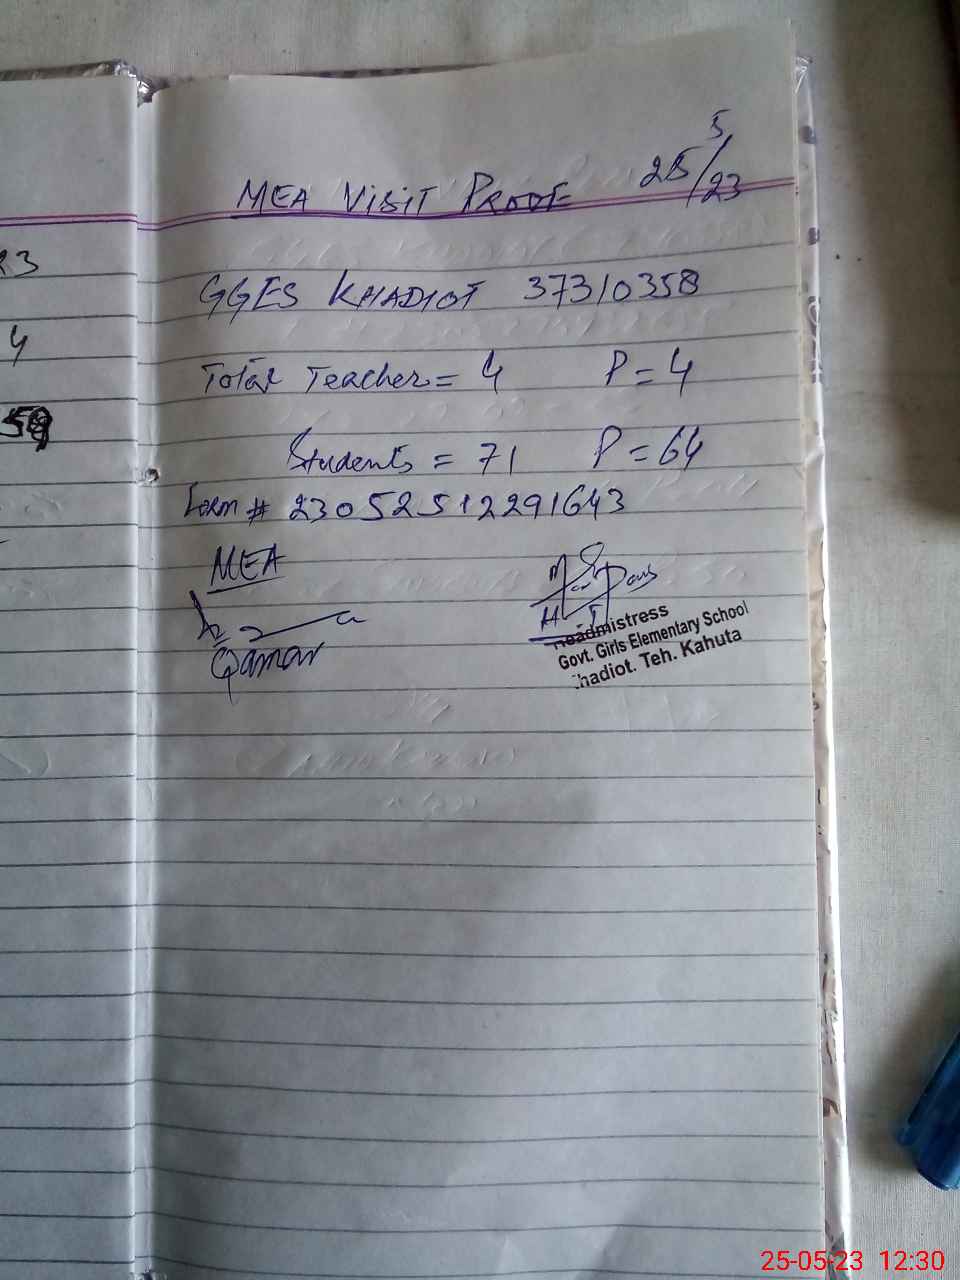 23
4
MEA VISIT PROOF 25/5/23
GGES KHADIOT 37310358
Total Teacher = 4 P = 4
Students = 71 P = 64
Form # 230525122291643
MEA
Qamar
H
Headmistress
Govt. Girls Elementary School
Khadiot. Teh. Kahuta
25-05-23 12:30